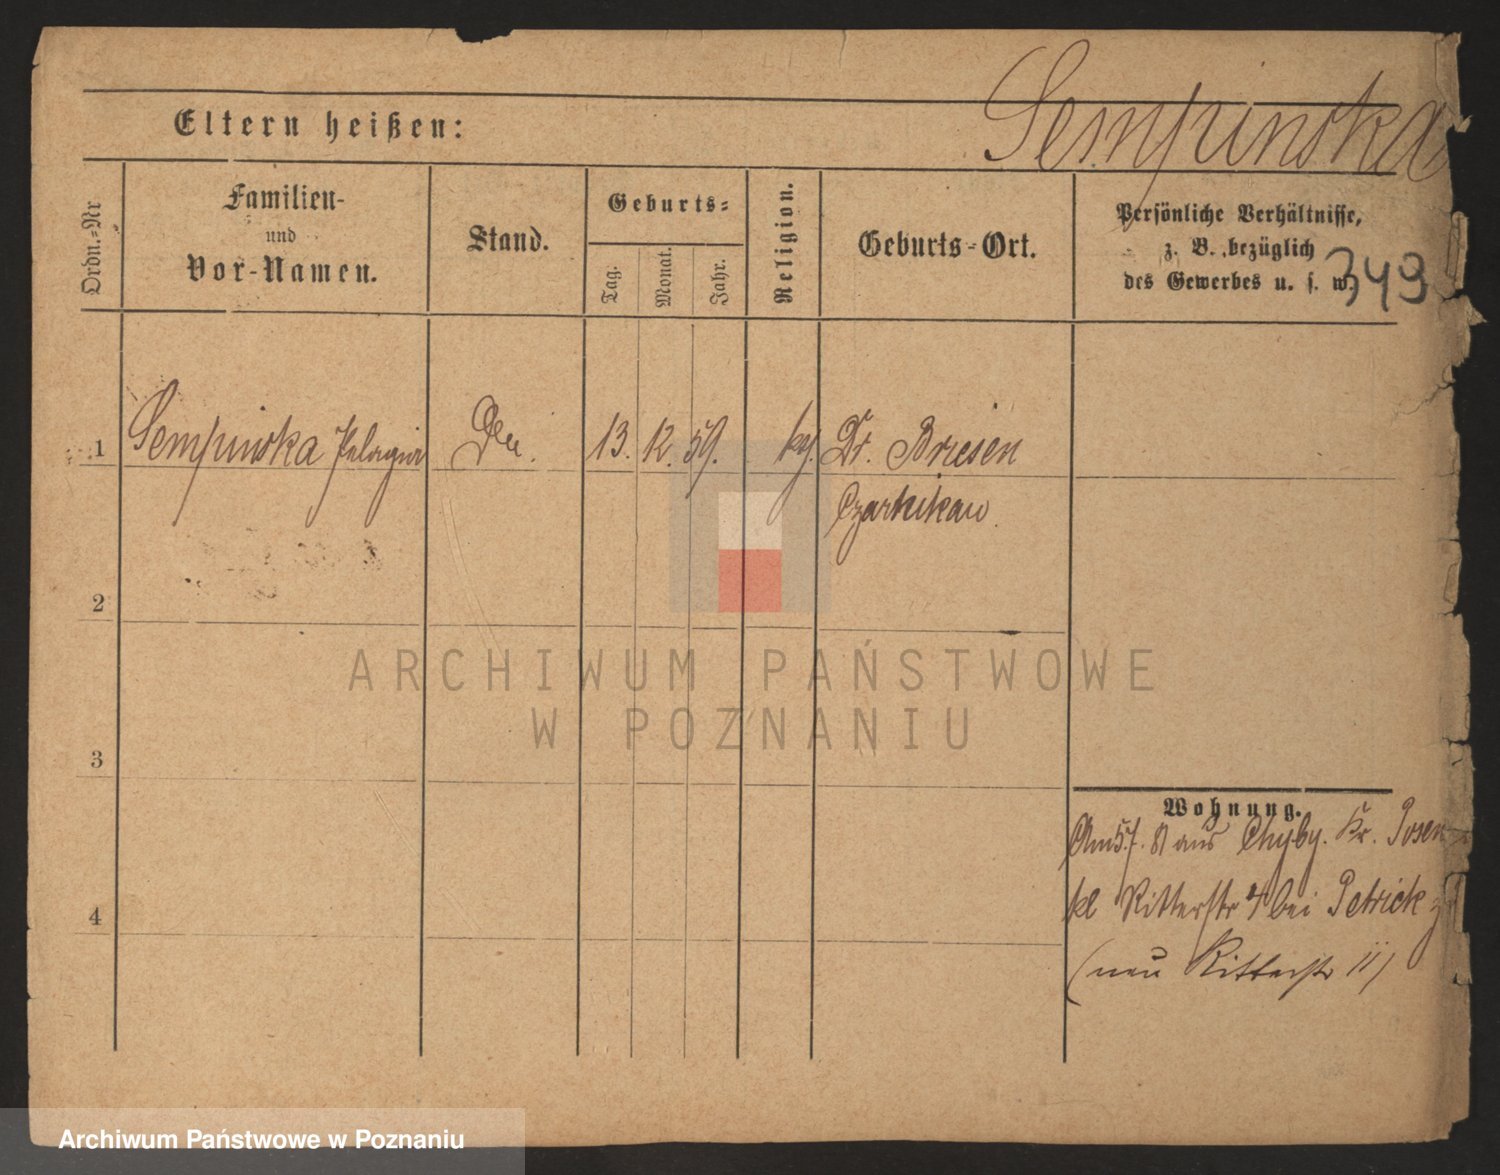 Sempinska
Eltern heißen:
Ordn.-Nr
Familien-
und
Vor-Namen.
Stand.
Geburts-
Tag.
Monat.
Jahr.
Religion.
Geburts-Ort.
Persönliche Verhältnisse,
z. B. bezüglich
des Gewerbes u. s. w.
349
1 Sempinska Pelagia 13. 12. 59. Dt. Briesen
Czarnikau.
2
3
4
Wohnung.
Am 5.7. 81 aus Chyby. Kr. Posen
kl Ritterstr 4 bei Petrick
(neu Ritterstr 11)
ARCHIWUM PAŃSTWOWE
W POZNANIU
Archiwum Państwowe w Poznaniu